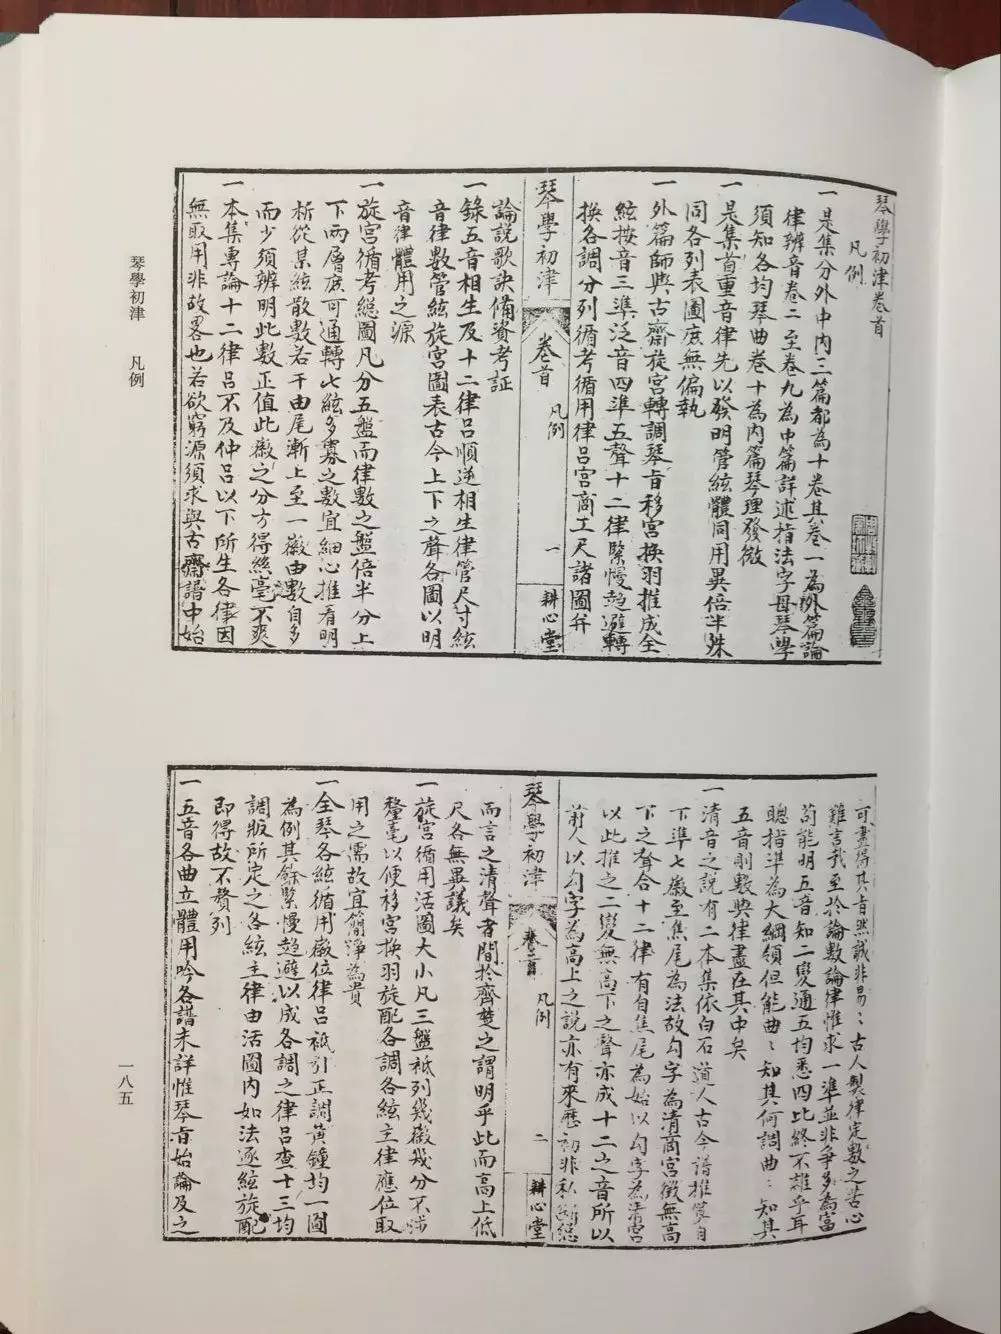 琴學初津卷首
凡例
一是集分外中內三篇都為十卷其卷一為外篇論
律辨音卷二至卷九為中篇詳述指法字母琴學
須知各均琴曲卷十為內篇琴理發微
一是集首重音律先以發明管絃體同用異倍半殊
同各列表圖庶無偏執
一外篇師與古齋旋宮轉調琴旨移宮換羽推成全
絃按音三準泛音四準五聲十二律緊慢越避轉
換各調分列循考循用律呂宮商工尺諸圖弁
琴學初津
卷首
凡例
一
耕心堂
論說歌訣備資考証
一錄五音相生及十二律呂順逆相生律管尺寸絃
音律數管絃旋宮圖表古今上下之聲各圖以明
音律體用之源
一旋宮循考總圖凡分五盤而律數之盤倍半分上
下兩層庶可通轉七絃多寡之數宜細心推看明
析從某絃散數若干由尾漸上至一徽由數自多
而少須辨明此數正值此徽之分方得絲毫不爽
一本集專論十二律呂不及仲呂以下所生各律因
無取用非故畧也若欲窮源須求與古齋譜中始
可盡得其旨然誠非易〻古人製律定數之苦心
難言哉至於論數論律惟求一準並非爭多為富
苟能明五音知二變通五均悉四此終不雜乎耳
聰指準為大綱領但能曲〻知其何調曲〻知其
五音則數與律盡在其中矣
一清音之說有二本集依白石道人古今譜推篡自
下準七徽至焦尾為法故勾字為清商宮徵無高
下之聲合十二律有自焦尾為始以勾字為清宮
以此推之二變無高下之聲亦成十二之音所以
前人以勾字為高上之說亦有來歷初非私
琴學初津
凡例
二
耕心堂
而言之清聲者間於齊楚之謂明乎此而高上低
尺各無異議矣
一旋宮循用活圖大小凡三盤祇列幾徽幾分不涉
釐毫以便移宮換羽旋配各調各絃主律應位取
用之需故宜簡淨為貴
一全琴各絃循用徽位律呂祇引正調黃鐘均一圖
為例其餘緊慢越避以成各調之律呂查十三均
調版所定之各絃主律由活圖內如法逐絃旋配
即得故不贅列
一五音各曲立體用吟各譜未詳惟琴旨始論及之
琴學初津 凡例
一八五